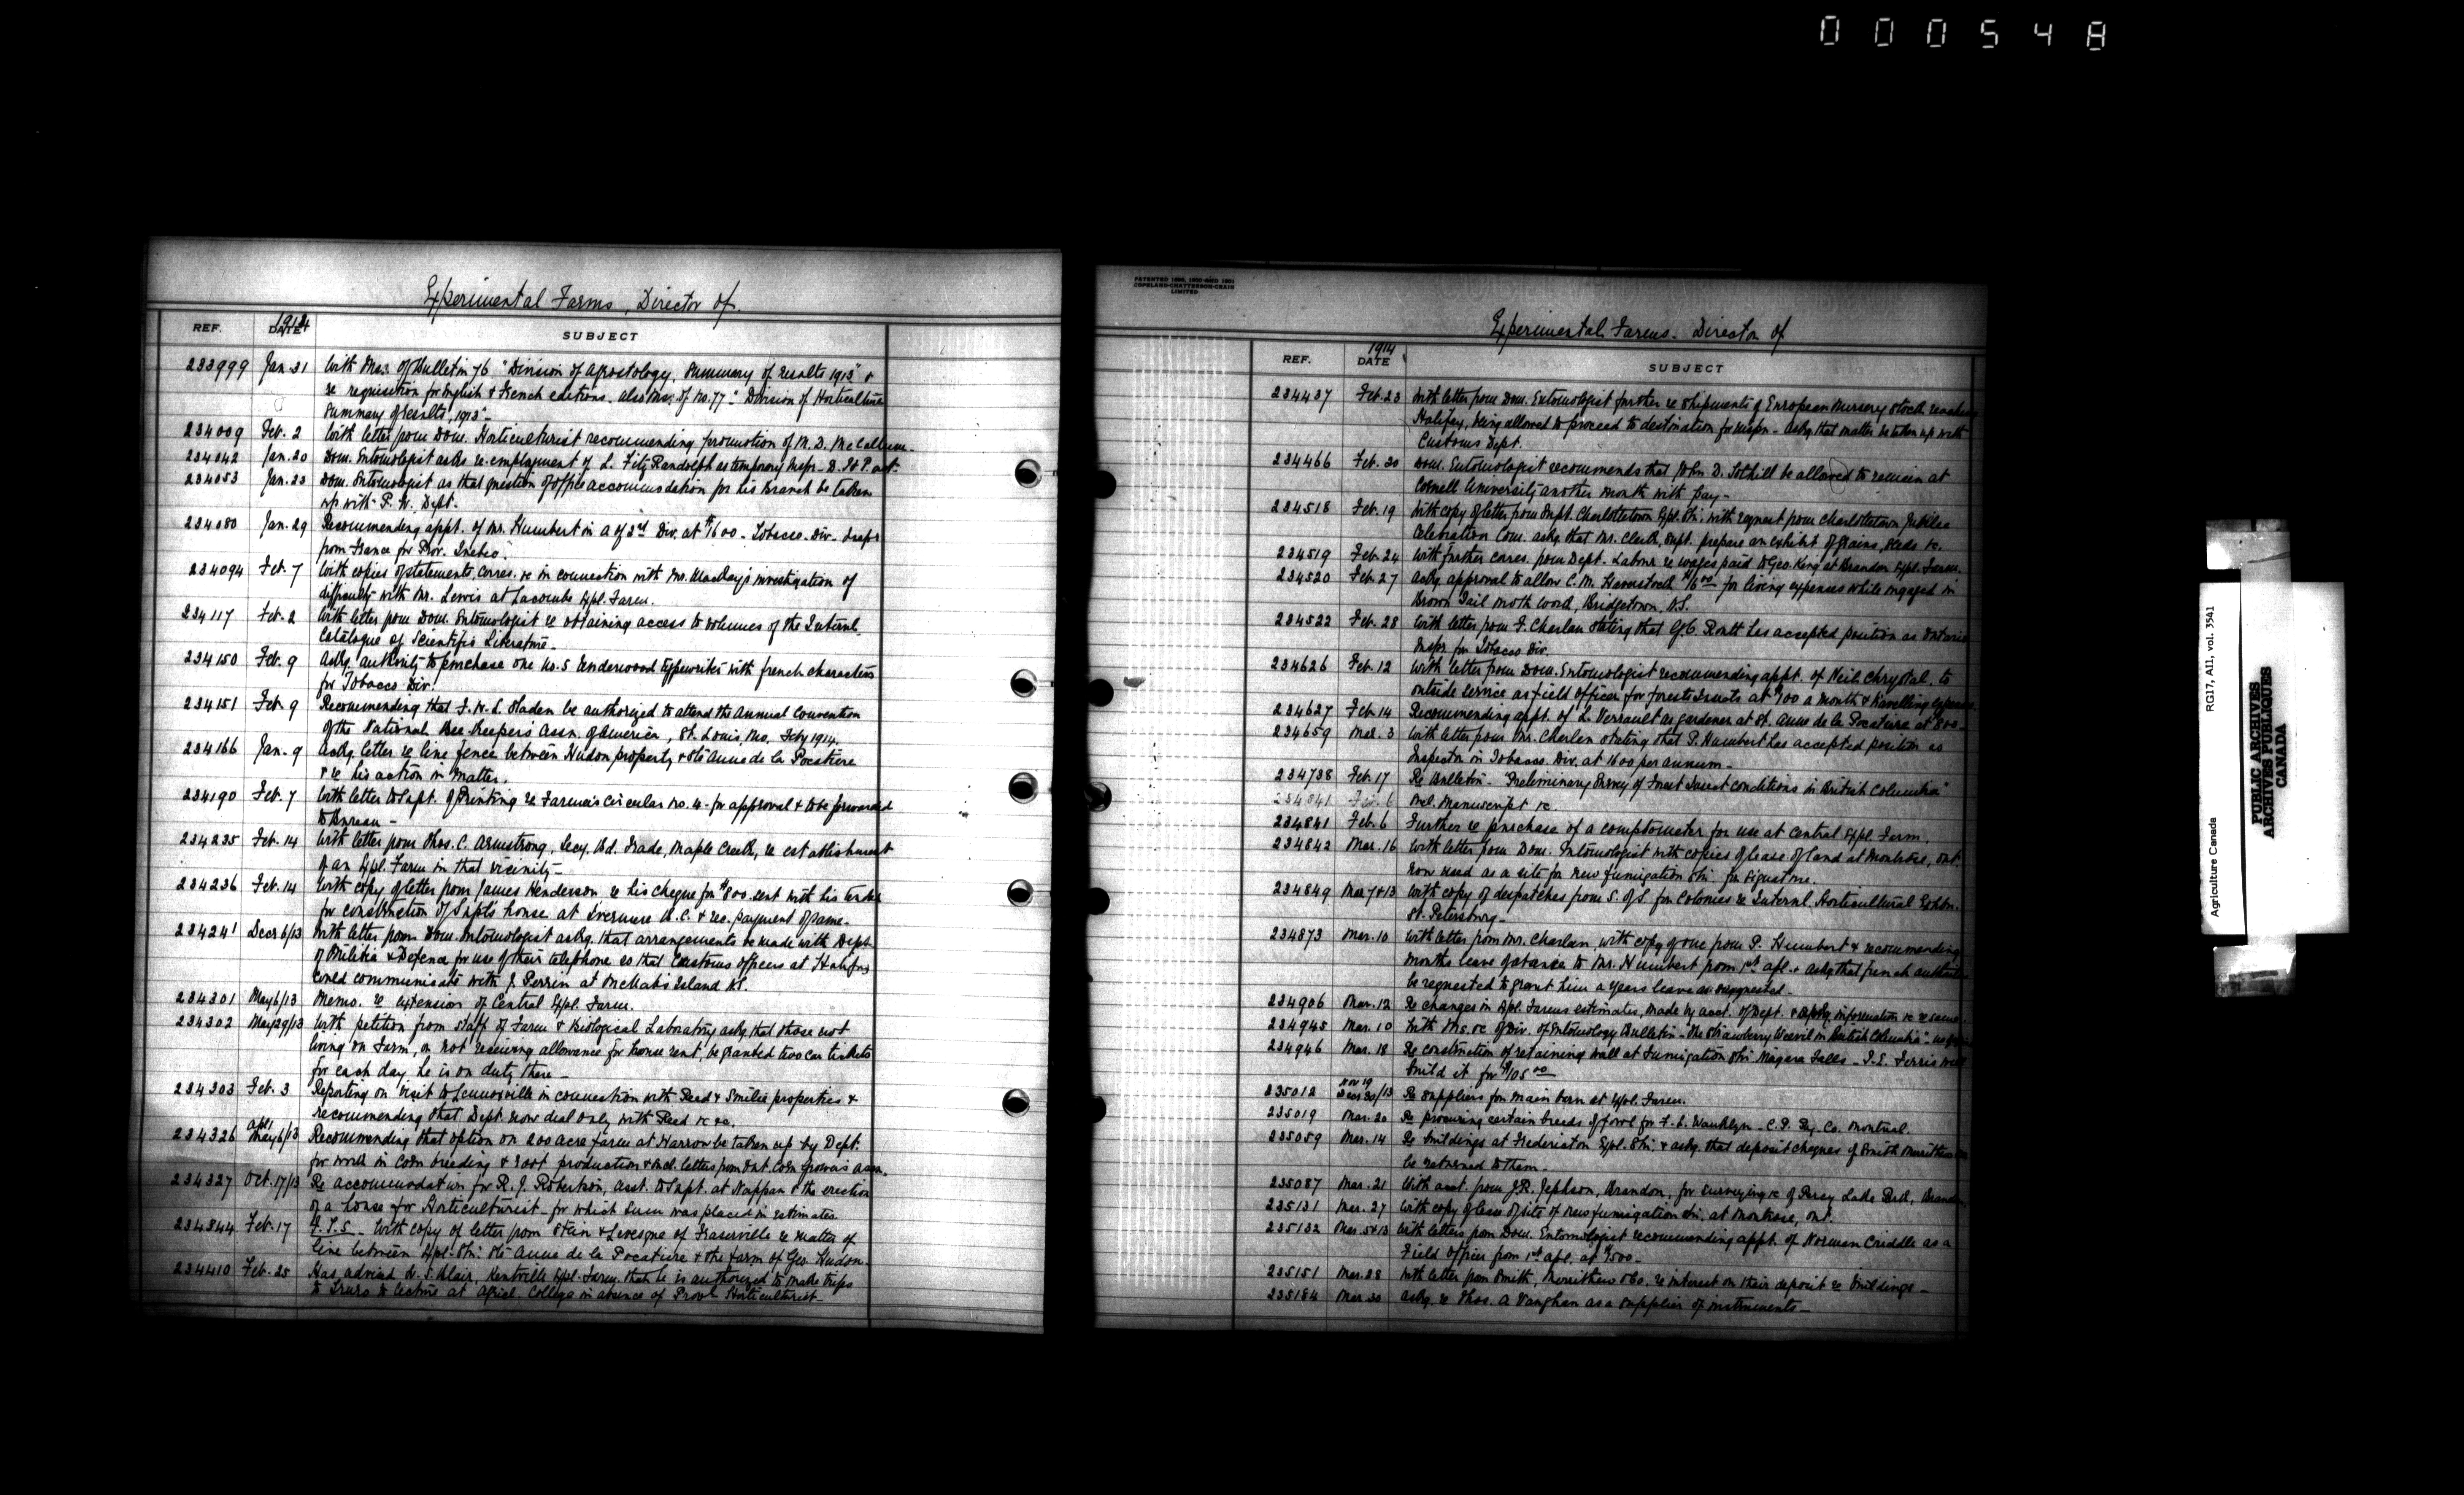 000548
Experimental Farms, Director of.
REF. 1914 DATE SUBJECT
233999 Jan. 31 With Mss. of Bulletin 76 "Division of Agrostology, Summary of results 1913" &
re requisition for English & French editions. also Mss. of No. 77 "Division of Horticulture
Summary of results, 1913"-
234009 Feb. 2 With letter from Dom. Horticulturist recommending promotion of M. D. McCallum.
234042 Jan. 20 Dom. Entomologist asks re-employment of L. FitzRandolph as temporary Inspr. - D. I & P. act-
234053 Jan. 23 Dom. Entomologist as that question of office accommodation for his Branch be taken
up with P. W. Dept.
234080 Jan. 29 Recommending appt. of Mr. Humbert in A of 2nd Div. at $1600 - Tobacco Div. Inspr
from France for Prov. Quebec.
234094 Feb. 7 With copies of statements, corres. &c in connection with Mr. MacKay's investigation of
difficulty with Mr. Lewis at Lacombe Expl. Farm.
234117 Feb. 2 With letter from Dom. Entomologist re obtaining access to volumes of the Internl.
Catalogue of Scientific Literature.
234150 Feb. 9 Askg. authority to purchase one No. 5 Underwood typewriter with french characters
for Tobacco Div.
234151 Feb. 9 Recommending that F. W. L. Sladen be authorized to attend the Annual Convention
of the National Bee Keepers Assn. of America, St. Louis, Mo. Feby 1914.
234166 Jan. 9 Askg. letter re line fence between Hudon property & Ste Anne de la Pocatiere
& re his action in matter.
234190 Feb. 7 With letter to Supt. of Printing re Farmer's Circular No. 4 - for approval & to be forwarded
to Bureau -
234235 Feb. 14 With letter from Thos. C. Armstrong, Secy. Bd. Trade, Maple Creek, re establishment
of an Expl. Farm in that vicinity -
234236 Feb. 14 With copy of letter from James Henderson re his cheque for $800 sent with his tender
for construction of Supt's house at Invermere B.C. & rec. payment of same -
234241 Decr 6/13 With letter from Dom. Entomologist askg. that arrangements be made with Dept.
of Militia & Defence for use of their telephone so that Customs officers at Halifax
could communicate with J. Perrin at McNabs Island N.S.
234301 May 6/13 Memo. re extension of Central Expl. Farm.
234302 May 29/13 With petition from staff of Farm & Biological Laboratory askg. that those not
living on Farm, or not receiving allowance for house rent, be granted two car tickets
for each day he is on duty there -
234303 Feb. 3 Reporting on visit to Lennoxville in connection with Reed & Smilie properties &
recommending that Dept. now deal only with Reed &c &c.
234326 Apl May 6/13 Recommending that option on 200 acre farm at Harrow be taken up by Dept.
for work in Corn breeding & root production & encl. letters from Ont. Corn Growers Assn.
234327 Oct. 17/13 Re accommodation for R. J. Robertson, Asst. to Supt. at Nappan & the erection
of a house for Horticulturist - for which sum was placed in estimates
234344 Feb. 17 With copy of letter from Stein & Levesque of Fraserville re matter of
line between Expl. Stn. Ste Anne de la Pocatiere & the farm of Geo. Hudon.
234410 Feb. 25 Has advised W. S. Blair, Kentville Expl. Farm, that he is authorized to make trips
to Truro to lecture at Agricl. College in absence of Provl. Horticulturist -
PATENTED
COPELAND-CHATTERSON-CRAIN
LIMITED
Experimental Farms - Director of
REF. 1914 DATE SUBJECT
234437 Feb. 23 With letter from Dom. Entomologist further re shipments of European Nursery stock reaching
Halifax, being allowed to proceed to destination for inspn. - askg. that matter be taken up with
Customs Dept.
234466 Feb. 20 Dom. Entomologist recommends that John D. Tothill be allowed to remain at
Cornell University another month with pay -
234518 Feb. 19 With copy of letter from Supt. Charlottetown Expl. Stn. with request from Charlottetown Jubilee
Celebration Com. askg. that Mr. Clark, Supt. prepare an exhibit of grains, seeds &c.
234519 Feb. 24 With further corres. from Dept. Labour re wages paid to Geo. King at Brandon Expl. Farm.
234520 Feb. 27 Askg. approval to allow C. M. for living expenses while engaged in
Brown Tail Moth work, Bridgetown, N.S.
234522 Feb. 28 With letter from F. Charlan stating that G. C. Routt has accepted position as Ontario
Inspr. for Tobacco Div.
234626 Feb. 12 With letter from Dom. Entomologist recommending appt. of Neil Chrystal, to
outside service as field officer for forest insects at $100 a month & travelling expenses.
234627 Feb. 14 Recommending appt. of L. Verrault as gardener at St. Anne de la Pocatiere at 800 -
234659 Mar. 3 With letter from Mr. Charlan stating that P. Humbert has accepted position as
Inspector in Tobacco. Div. at 1600 per annum -
234738 Feb. 17 Re Bulletin - "Preliminary Survey of Forest Insect conditions in British Columbia"
Encl. manuscript &c.
234841 Feb. 6 Further re purchase of a comptometer for use at Central Expl. Farm.
234842 Mar. 16 With letter from Dom. Entomologist with copies of lease of land at Montrose, Ont.
now used as a site for new fumigation Stn. for signature.
234849 Mar 7 & 13 With copy of despatches from S. of S. for Colonies re Internl. Horticultural Exhbn.
St. Petersburg -
234873 Mar. 10 With letter from Mr. Charlan, with copy of one from P. Humbert & recommending
months leave of absence to Mr. Humbert from 1st Apl. & askg. that french
be requested to grant him a years leave as suggested -
234906 Mar. 12 Re changes in Expl. Farms estimates, made by acct. of Dept. & information &c re same
234945 Mar. 10 With Mss. &c of Div. of Entomology Bulletin - "The Strawberry Weevil in British Columbia"
234946 Mar. 18 Re construction of retaining wall at Fumigation Stn. Niagara Falls - J. E. Ferris will
build it for $105.00
235012 Nov 19 Decr 30/13 Re suppliers for main barn at Expl. Farm.
235019 Mar. 20 Re procuring certain breeds of fowl for F. L. Wanklyn - C. P. Ry. Co. Montreal.
235059 Mar. 14 Re buildings at Fredericton Expl. Stn. & askg. that deposit cheques of Smith Merrithew
be returned to them.
235087 Mar. 21 With acct. from J. R. Jephson, Brandon, for surveying &c of Percy Lake Park, Brandon
235131 Mar. 27 With copy of lease of site of new fumigation Stn. at Montrose, Ont.
235132 Mar. 5 & 13 With letters from Dom. Entomologist recommending appt. of Norman Criddle as a
Field Officer from 1st Apl. at $500 -
235151 Mar. 28 With letter from Smith, Merrithew & Co. re interest on their deposit re buildings -
235184 Mar. 30 Askg. re Thos. A Vaughan as a supplier of instruments -
Agriculture Canada RG17, A11, vol. 3541
PUBLIC ARCHIVES
ARCHIVES PUBLIQUES
CANADA